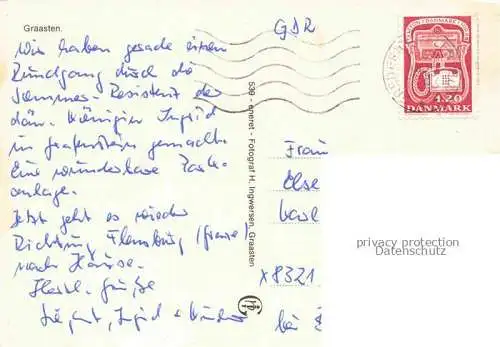 Graasten.
GDR
Wir haben gerade einen
Rundgang durch die
Sommer-Residenz der
dän. Königin Ingrid
in Grafenstein gemacht.
Eine wunderbare Park-
anlage.
Jetzt geht es wieder
Richtung Flensburg (Grenze)
nach Hause.
Herzl. Grüße
Ingrid +
539 - eneret - Fotograf H. Ingwersen, Graasten
1.20
DANMARK
Frau
Else
x8321
bei
privacy protection
Datenschutz